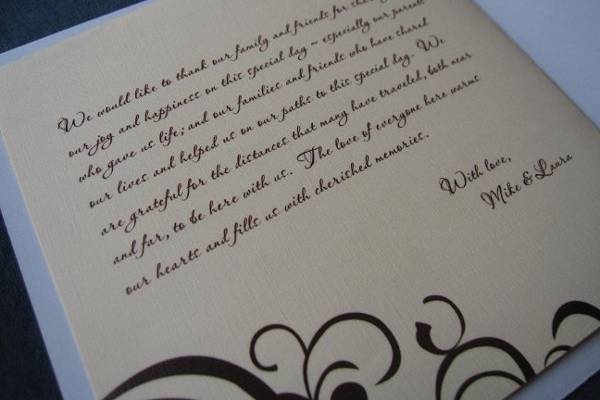 We would like to thank our family and friends for sharing
our joy and happiness on this special day ~ especially our parents
who gave us life; and our families and friends who have shared
our lives and helped us on our paths to this special day. We
are grateful for the distances that many have traveled, both near
and far, to be here with us. The love of everyone here warms
our hearts and fills us with cherished memories.
With love,
Mike & Laura